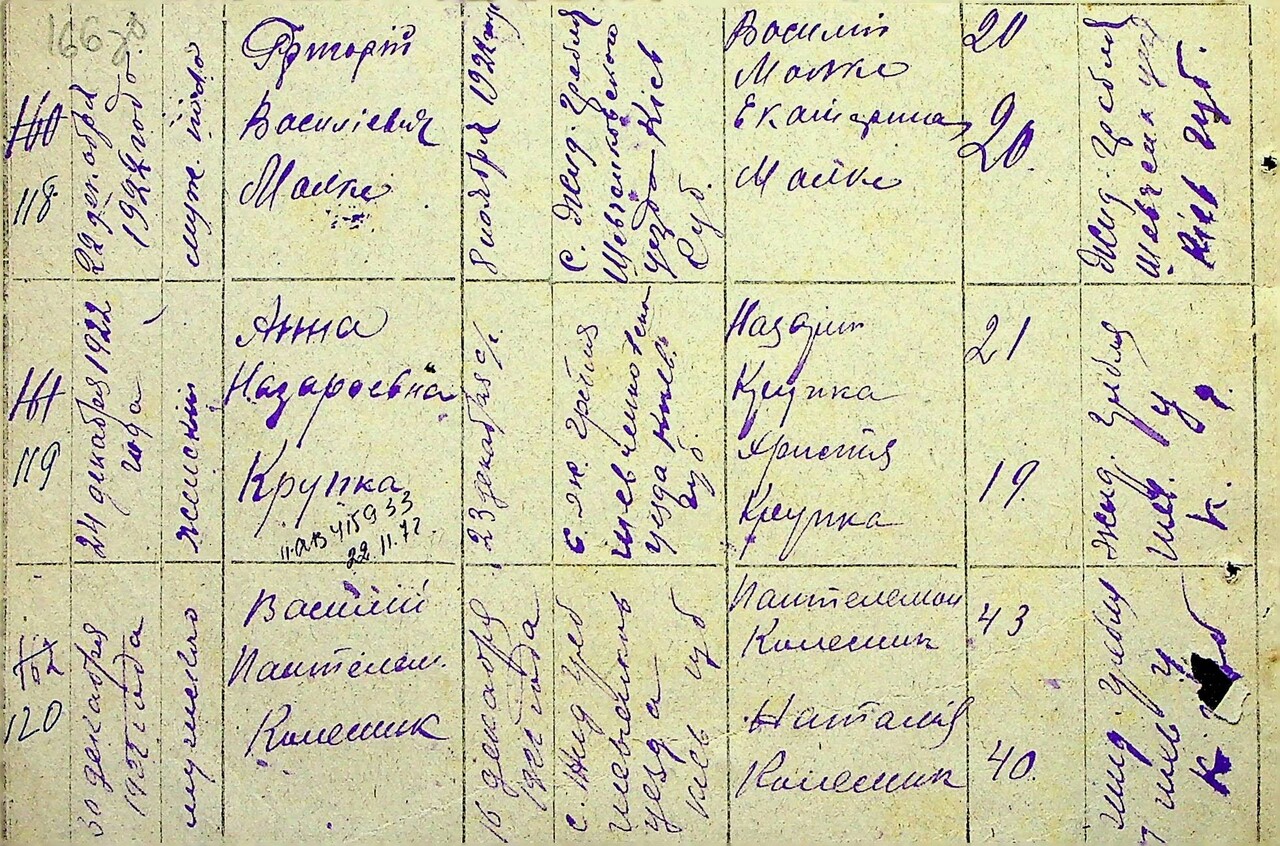 166 зв
160
118
22 декабря
1922 года.
муж. пола
Григорій
Василіевич
Малке
8 ноября 1922 г
с. Жид-Гребля
Шевченковского
уезда Кіев
Губ.
Василій
Малке
Екатерина
Малке
20
20.
Жид-Гребля
Шевченк уезд
Кіев Губ.
161
119
24 декабря 1922
года
женский
Анна
Назаровна
Крупка
22.11.72
23 декабря с/г
с Жи. Гребля
Шевченковско
уезда Киев.
губ.
Назарий
Крупка
Христия
Крупка
21
19.
Жид. Гребля
Шев. у
К. г.
120
30 декабря
1922 года
мужского
Василий
Пантелем.
Колесник
16 декабря
1922 года
с. Жид Греб
Шевченков
уезда
Киев губ
Пантелемон
Колесник
Наталия
Колесник
43
40.
Жид. Гребля
Шев у
К.